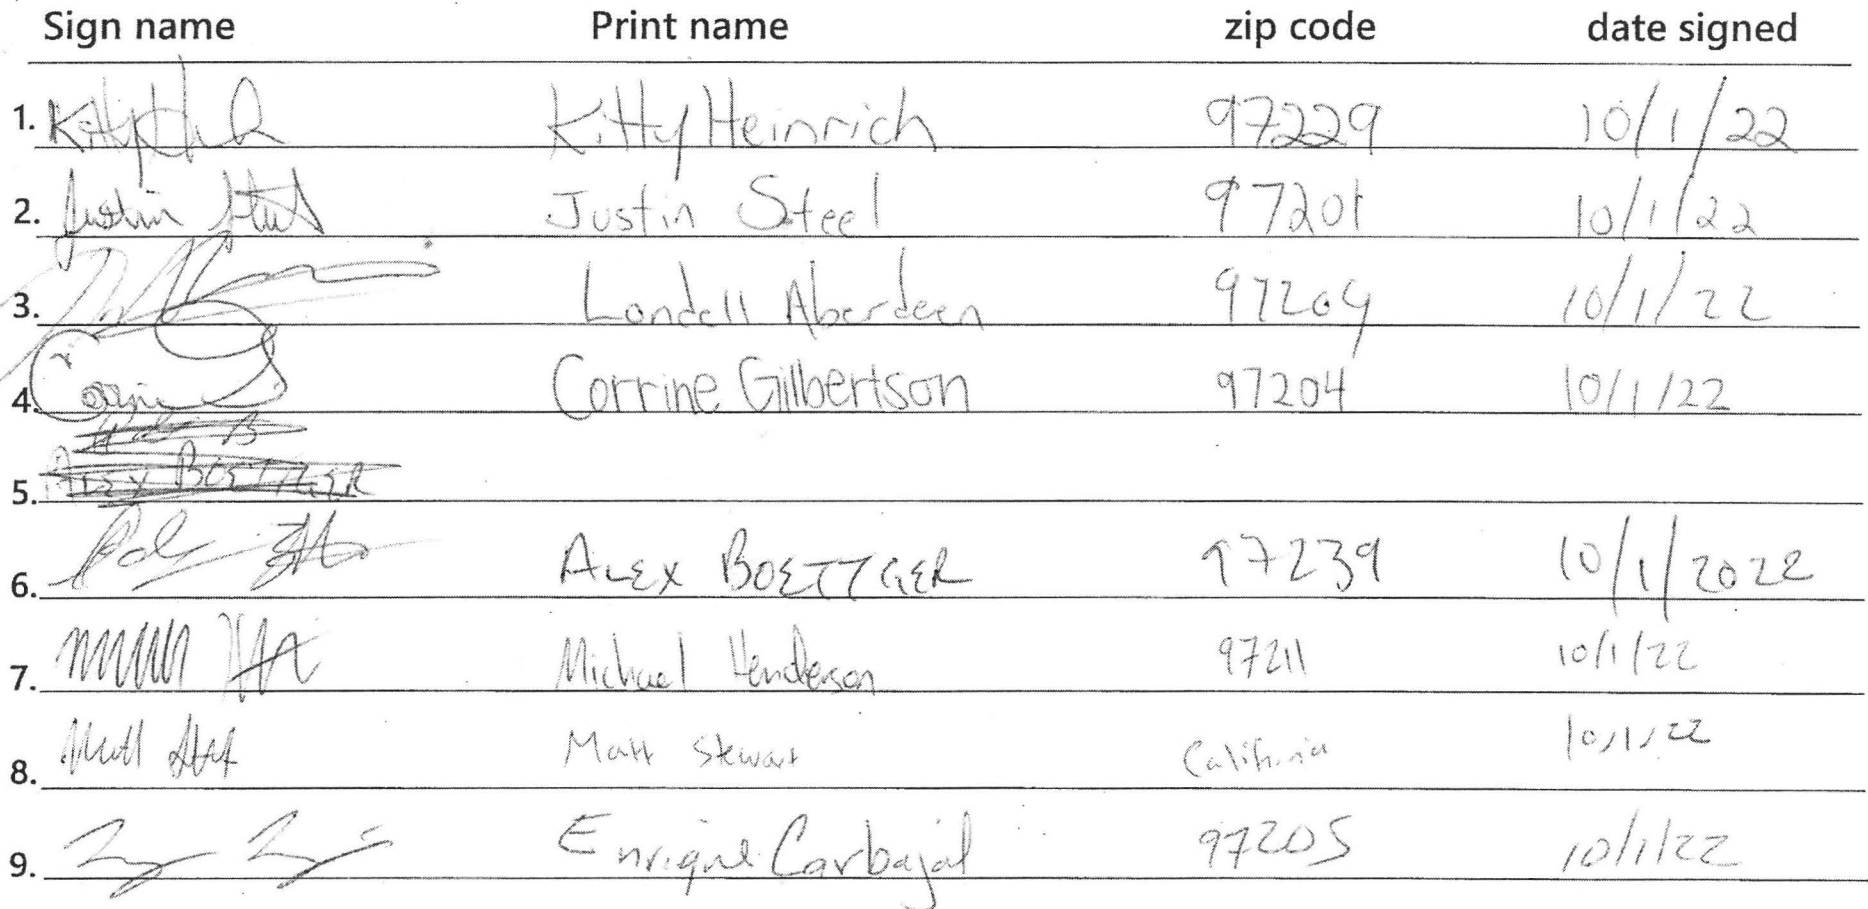 Sign name Print name zip code date signed
1. Kitty Kitty Heinrich 97229 10/1/22
2. Justin Justin Steel 97201 10/1/22
3. Londell Aberdeen 97204 10/1/22
4. Corrine Corrine Gilbertson 97204 10/1/22
5. ALEX BOETTGER
6. ALEX BOETTGER 97239 10/1/2022
7. Michael Henderson 97211 10/1/22
8. Matt Matt Stewart California 10/1/22
9. Enrique Carbajal 97205 10/1/22